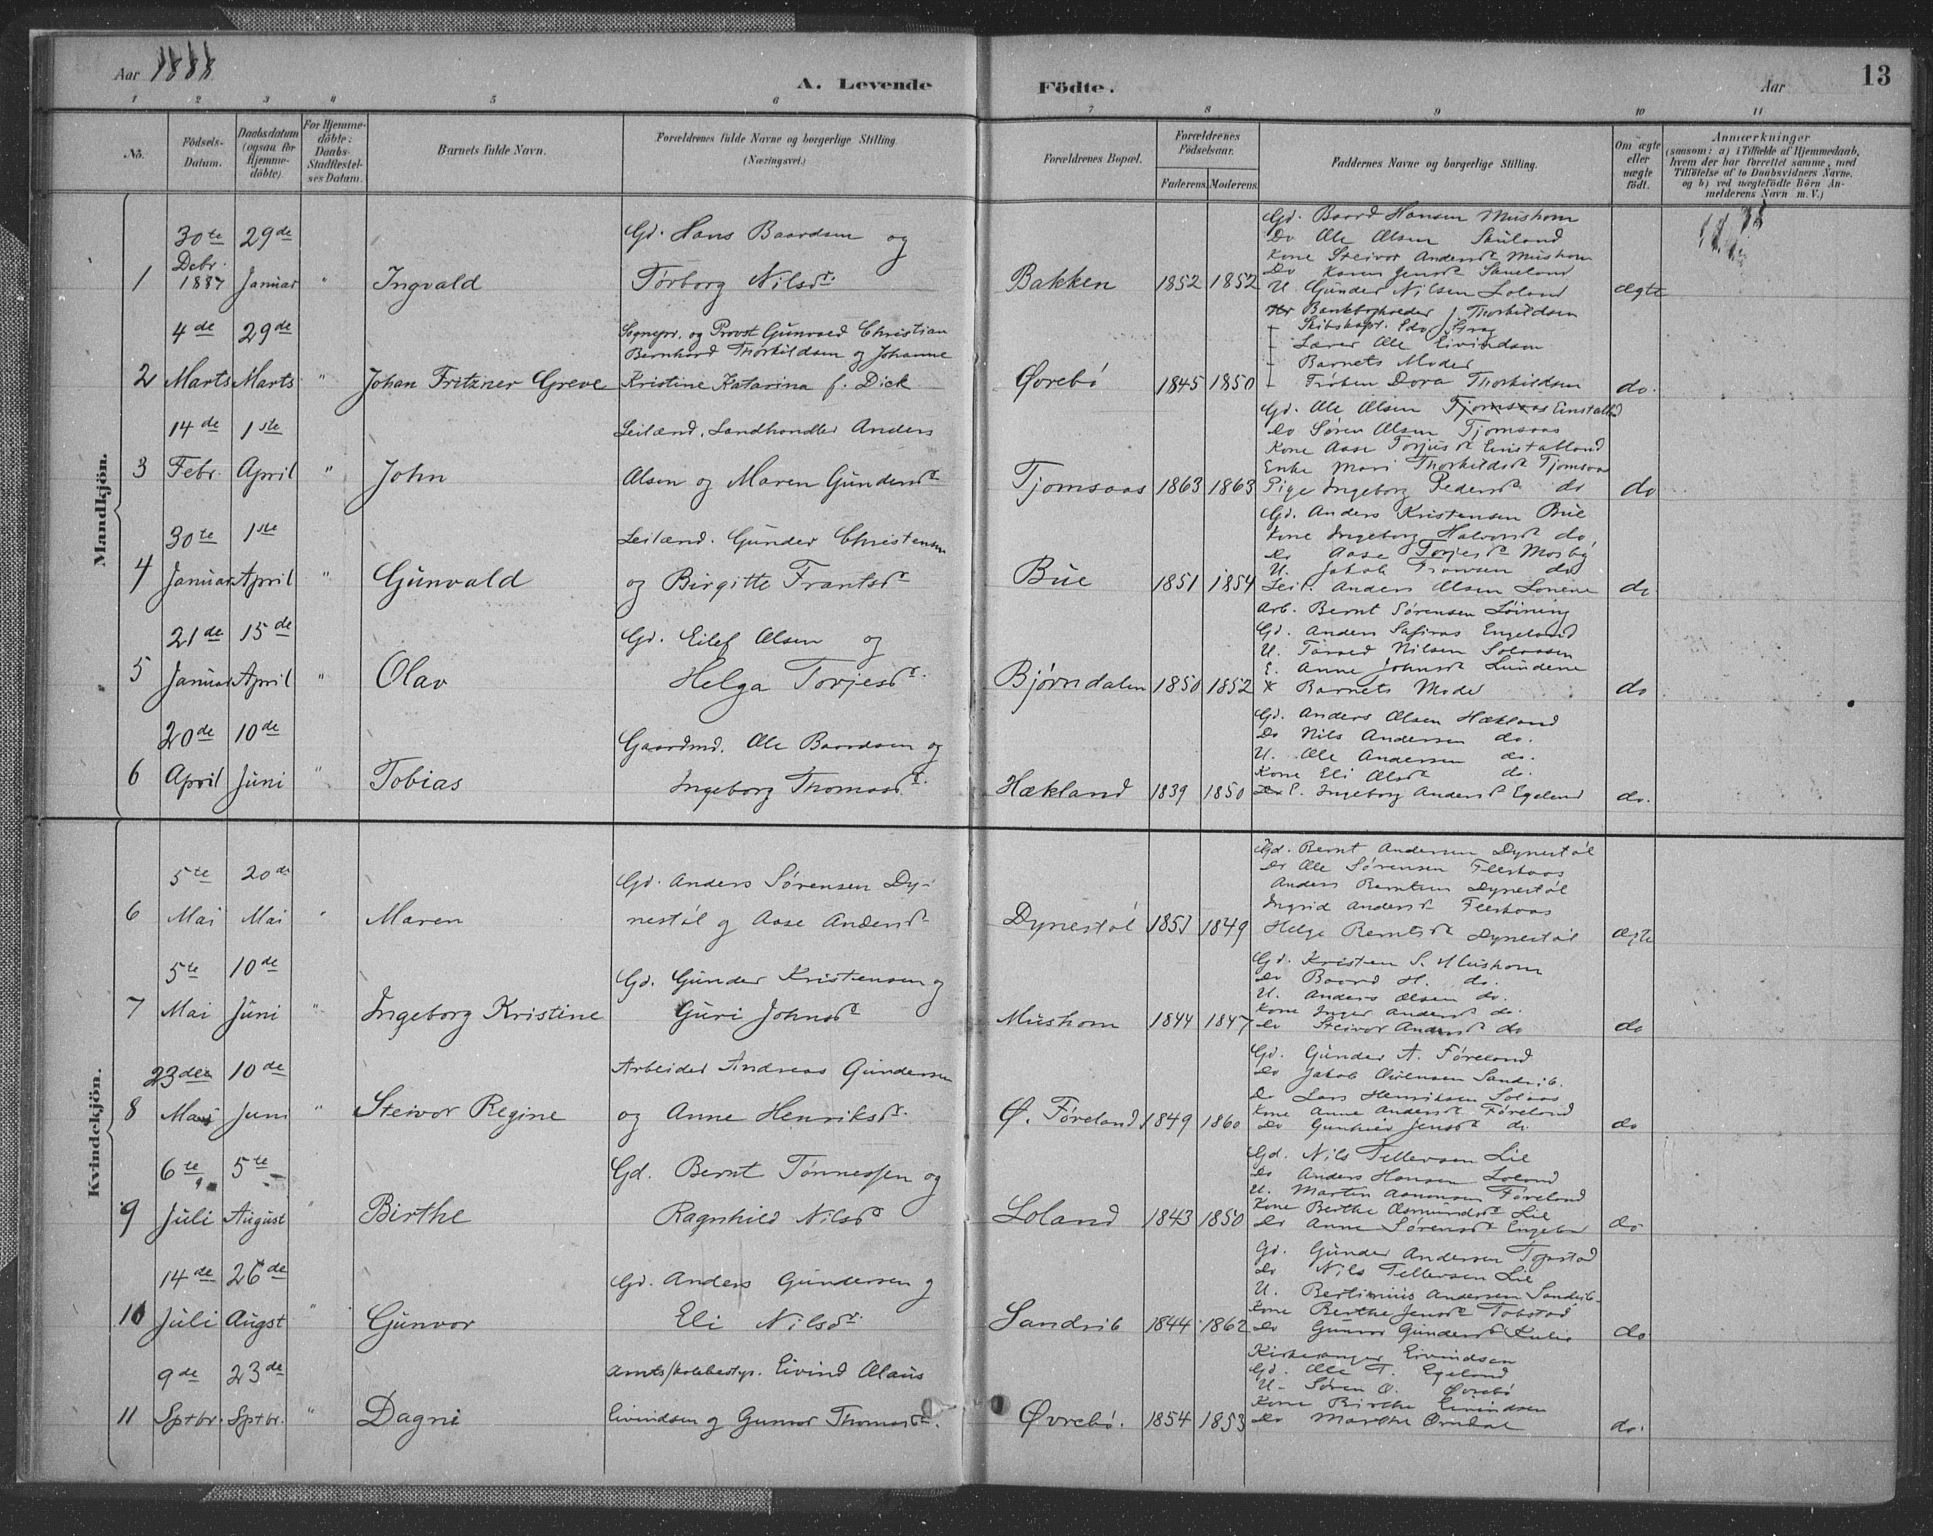 Aar 1888
A. Levende Födte.
Aar
13
1 2 3 4 5 6 7 8 9 10 11
No.
Födsels-Datum.
Daabsdatum (ogsaa for Hjemmedöbte).
For Hjemmedöbte: Daabs-Stadfæstelses Datum.
Barnets fulde Navn.
Forældrenes fulde Navne og borgerlige Stilling. (Næringsvei.)
Forældrenes Bopæl.
Forældrenes Födselsaar.
Faderens. Moderens.
Faddernes Navne og borgerlige Stilling.
Om ægte eller uægte födt.
Anmærkninger
(saasom: a) i Tilfælde af Hjemmedaab, hvem der har forrettet samme, med Tilföielse af to Daabsvidners Navne. og b) ved uægtefödte Börn Anmelderens Navn m. V.)
Mandkjön.
1 30te Debr. 1887 29de Januar " Ingvald
Gd. Hans Baardsen og
Torborg Nilsdt.
Bakken 1852 1852
Gd. Baard Hansen Mushom
Do Ole Olsen Skuland
Kone Steivor Andersdt Mushom
Do Karen Jensdt
U. Gunder Nilsen Loland
ægte
2 4de Marts 29de Marts " Johan Fritzner Greve
Sognepr. og Provst Gunvald Christian
Bernhard Thorkildsen og Johanne
Kristine Katarina f. Dick
Øvrebö 1845 1850
Hr Bankbogholder J. Thorkildsen
- Skibskapt.
- Lærer Ole Eivindsen
- Barnets Moder
- Fröken Dora Thorkildsen
do.
3 14de Febr. 1ste April " John
Leilænd. Landhandler Anders
Olsen og Maren Gundersdt
Tjomsaas 1863 1863
Gd. Ole Olsen Tjomsaas Einstabland
Do Sören Olsen Tjomsaas
Kone Aase Torjusdt Einstabland
Enke Mari Thorkildsdt Tjomsaas
Pige Ingeborg Pedersdt do
do
4 30te Januar 1ste April " Gunvald
Leilænd. Gunder Christensen
og Birgitte Frantsdt
Bue 1851 1854
Gd. Anders Kristensen Bue
Kone Ingeborg Halvorsdt do,
Do Aase Torjesdt Mosby
U. Jakob Fransen do
Leil. Anders Olsen Lonene
do
5 21de Januar 15de April " Olav
Gd. Eilef Olsen og
Helga Torjesdt.
Bjørndalen 1850 1852
Arb. Bernt Sørensen Løining
Gd. Anders Engeland
U. Nilsen Solaasen
E. Anne Johnsdt Lundene
K Barnets Moder
do
6 20de April 10de Juni " Tobias
Gaardmd. Ole Baardsen og
Ingeborg Thomasdt.
Hækland 1839 1850
Gd. Anders Olsen Hækland
Do Nils Andersen do.
U. Ole Andersen do.
Kone Eli Olsdt do.
E. Ingeborg Andersdt Egeland
do.
Kvindekjön.
6 5te Mai 20de Mai " Maren
Gd. Anders Sørensen Dy-
nestöl og Aase Andersdt
Dynestöl 1851 1849
Gd. Bernt Andersen Dynestöl
Do Ole Sørensen Fleskaas
Anders Berntsen Dynestöl
Ingrid Andersdt Fleskaas
Helge Berntsdt Dynestöl
ægte
7 5te Mai 10de Juni " Ingeborg Kristine
Gd. Gunder Kristensen og
Guri Johnsdt
Mushom 1844 1847
Gd. Kristen S. Mushom
Do Baard H. do.
U. Anders Olsen do.
Kone Inger Andersdt do.
Do Steivor Andersdt do
do
8 23de Mai 10de Juni " Steivor Regine
Arbeider Andreas Gundersen
og Anne Henriksdt.
Ø. Føreland 1849 1860
Gd. Gunder A. Føreland
Do Jakob Sandrib.
Do Lars Henriksen Solaas
Kone Anne Andersdt Føreland
Do Jensdt do
do
9 6te Juli 5te August " Birthe
Gd. Bernt Tønnessen og
Ragnhild Nilsdt
Loland 1843 1850
Gd. Nils Tellevsen Lie
Do Anders Hansen Loland
U. Martin Føreland
Kone Berthe Asmundsdt Lie
Do Anne Sørensdt
do
10 14de Juli 26de Augst " Gunvor
Gd. Anders Gundersen og
Eli Nilsdt.
Sandrib 1844 1862
Gd. Gunder Andersen
Do Nils Tellevsen Lie
U. Andersen Sandrib.
Kone Berthe Jensdt Tobstad
Do Gunvor Gundersdt Kulie
do
11 9de Sptbr. 23de Sptbr. " Dagni
Amtsskolebestyr. Eivind Olaus
Eivindsen og Gunvor Thomasdt.
Øvrebö. 1854 1853
Kirkesanger Eivindsen
Gd. Ole T. Egeland
U. Søren O. Øvrebö
Kone Birthe Eivindsen
Do Marthe
do.